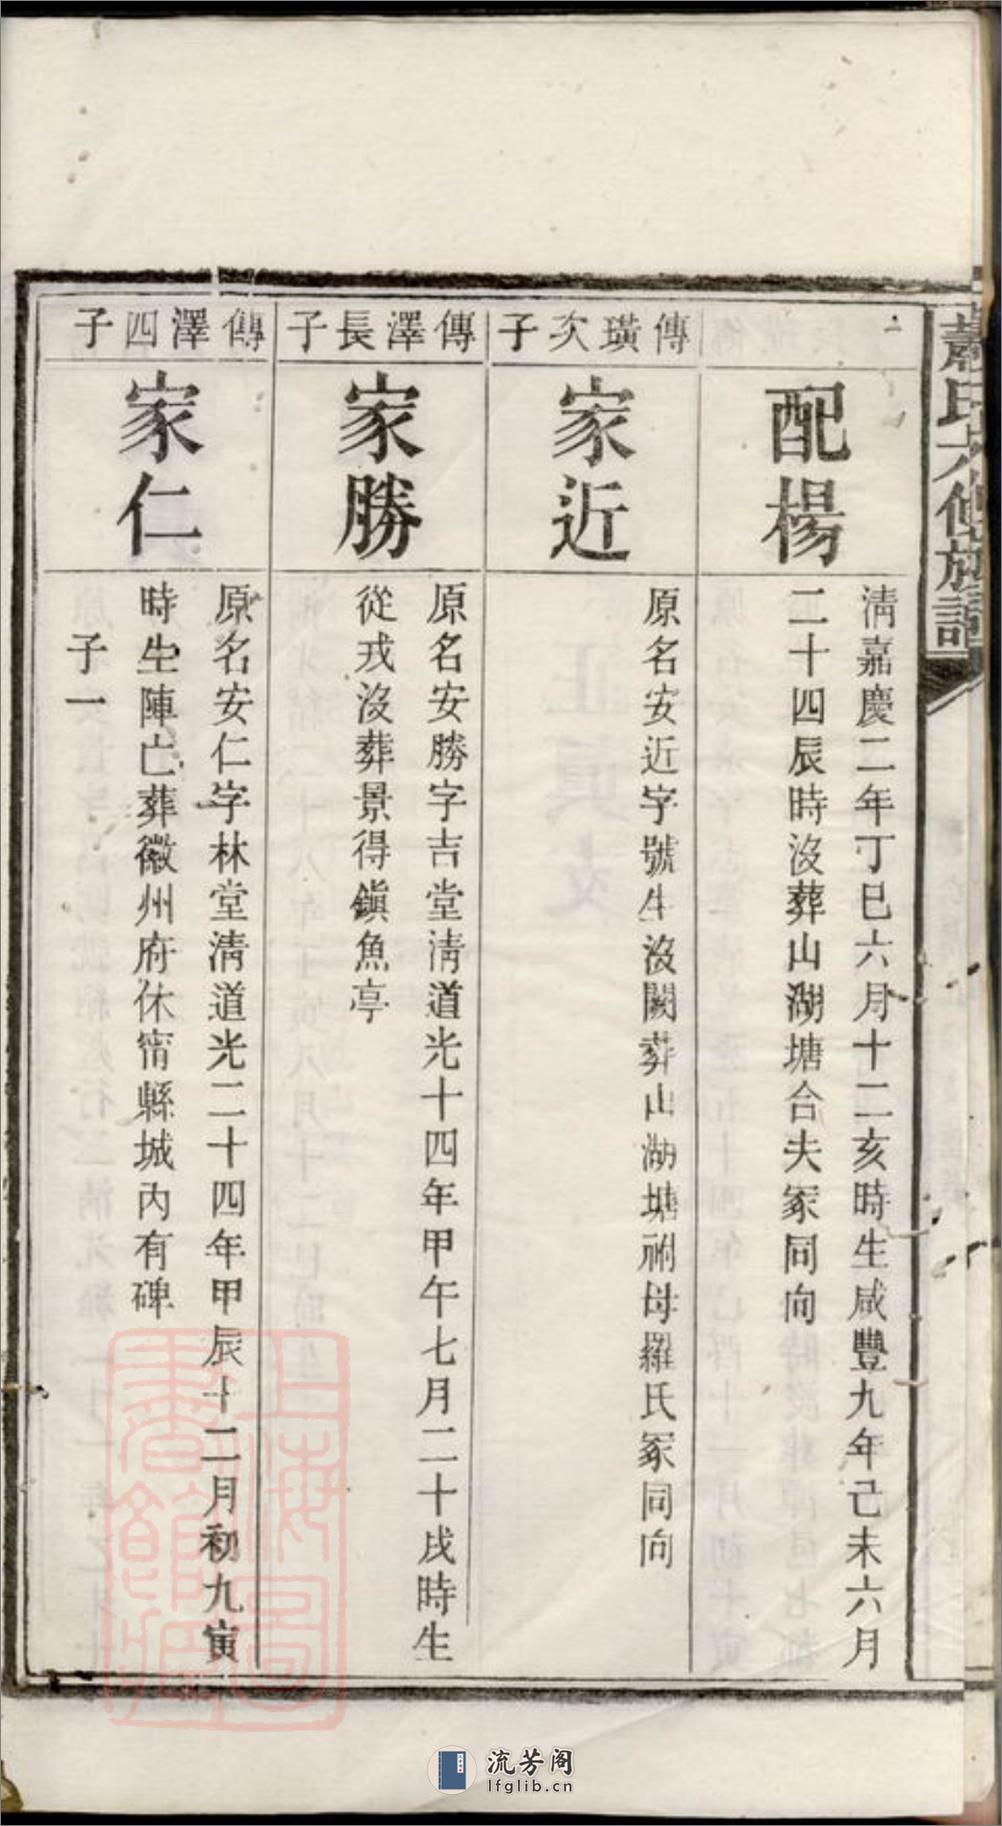 蕭氏六修族譜
配楊
清嘉慶二年丁巳六月十二亥時生咸豐九年己未六月
二十四辰時沒葬山湖塘合夫冢同向
傳璜次子
家近
原名安近字號生沒闕葬山湖塘祔母羅氏冢同向
傳澤長子
家勝
原名安勝字吉堂清道光十四年甲午七月二十戌時生
從戎沒葬景得鎭魚亭
傳澤四子
家仁
原名安仁字林堂清道光二十四年甲辰十二月初九寅
時生陣亡葬徽州府休甯縣城內有碑
子一
上海圖書館藏
流芳阁
lfglib.cn